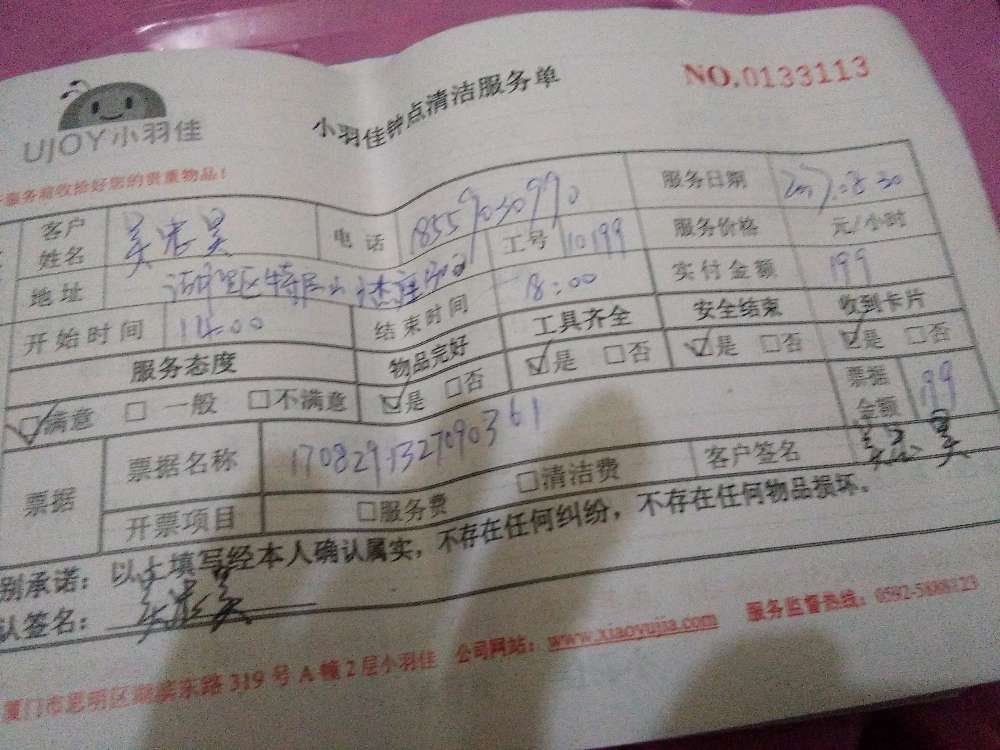 UJOY小羽佳
小羽佳钟点清洁服务单
NO.0133113
服务前收拾好您的贵重物品!
客户姓名 电话 18559030990 服务日期
地址 工号 10199 服务价格 元/小时
开始时间 14:00 结束时间 18:00 实付金额 199
服务态度 物品完好 工具齐全 安全结束 收到卡片
☑满意 □一般 □不满意 ☑是 □否 ☑是 □否 ☑是 □否 ☑是 □否
票据 票据名称 17082913270903361 票据金额 199
开票项目 □服务费 □清洁费 客户签名
别承诺:以上填写经本人确认属实,不存在任何纠纷,不存在任何物品损坏。
认签名:
厦门市思明区湖滨东路319号A幢2层小羽佳 公司网站:www.xiaoyujia.com 服务监督热线:0592-5888123